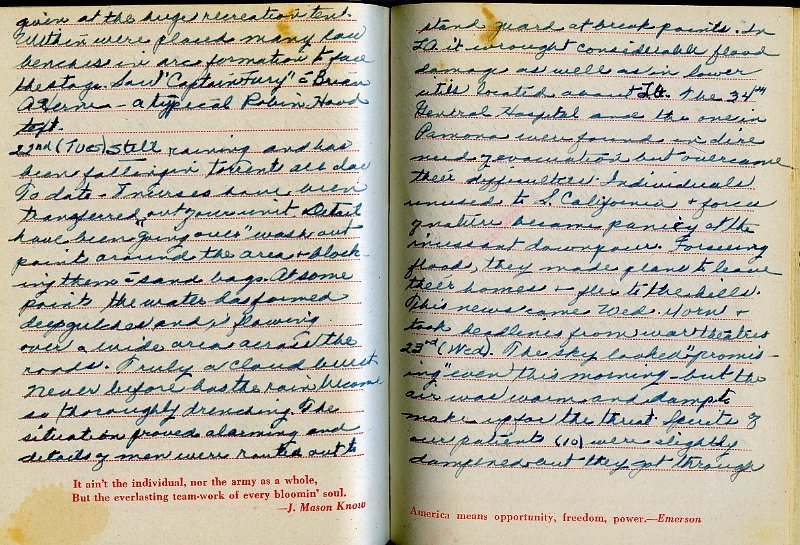 given at the huge recreation tent.
Within were placed many low
benches in arc formation to face
the stage. Saw "Captain Fury" c̄ Brian
Aherne - a typical Robin Hood
22nd (Tues) Still raining and has
been falling in torrents all day
To date - 7 nurses have been
transferred out of our unit. Detail
have been "going over" wash out
points around the area & block-
ing them c̄ sand bags. At some
points the water has formed
deep gulches and is flowing
over a wide area across the
roads. Truly a cloud burst.
Never before has the rain become
so thoroughly drenching. The
situation proved alarming and
details of men were routed out to
It ain't the individual, nor the army as a whole,
But the everlasting team-work of every bloomin' soul.
—J. Mason Knox
stand guard at break points. In
LA it wrought considerable flood
damage as well as in lower
located about LA. The 34th
General Hospital and the one in
Pomona were found in dire
need of evacuation but overcame
their difficulties. Individuals
unused to S. California & force
of nature became panicy at the
incessant downpour. Forseeing
flood, they made plans to leave
their homes & flee to the hills.
This news came Wed. morn &
took headlines from war theatres
23rd (Wed). The sky looked "promis-
ing" even this morning - but the
air was warm and damp to
make up for the threat. Spirits of
our patients (10) were slightly
dampened but they got through
America means opportunity, freedom, power.—Emerson